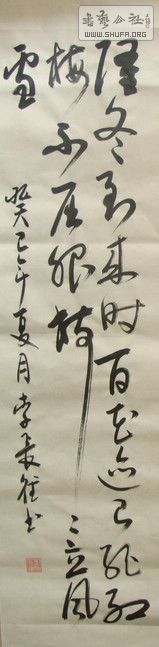 书艺公社
WWW.SHUFA.ORG
隆冬到来时百花迹已绝红
梅不屈服树々立风
雪
癸巳年夏月李长征书